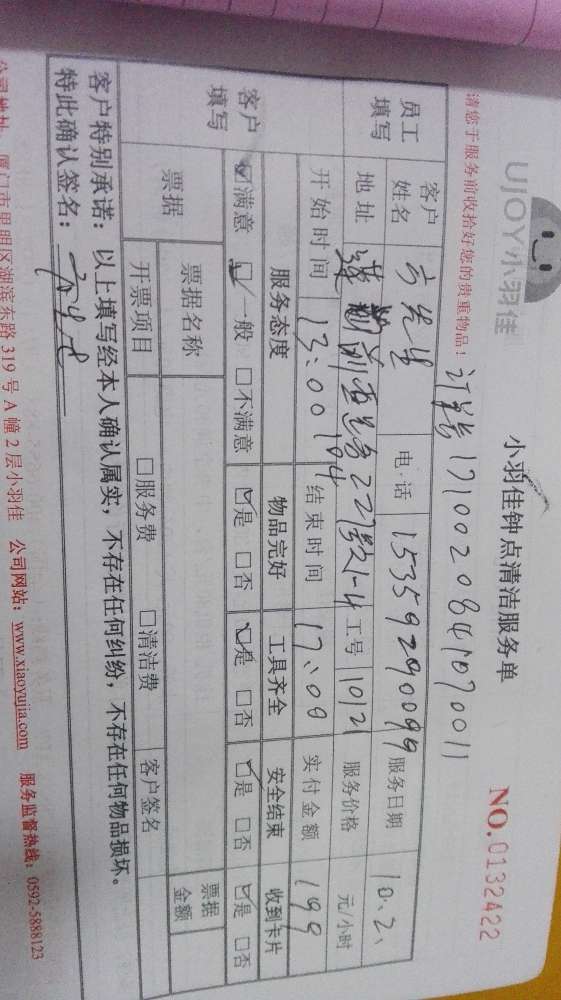 UJOY小羽佳
小羽佳钟点清洁服务单
NO.0132422
请您于服务前收拾好您的贵重物品！
1710020841070011
员工填写 客户姓名 方先生 电话 15359290099 服务日期 10.2.
地址 227号 1-4 工号 1012 服务价格 元/小时
客户填写 开始时间 13:00 结束时间 17:00 实付金额 199
服务态度 物品完好 工具齐全 安全结束 收到卡片
☑满意 □一般 □不满意 ☑是 □否 ☑是 □否 ☑是 □否 ☑是 □否
票据 票据名称 票据金额
开票项目 □服务费 □清洁费 客户签名
客户特别承诺：以上填写经本人确认属实，不存在任何纠纷，不存在任何物品损坏。
特此确认签名：
公司地址：厦门市思明区湖滨东路 319 号 A 幢 2 层小羽佳 公司网站：www.xiaoyujia.com 服务监督热线：0592-5888123